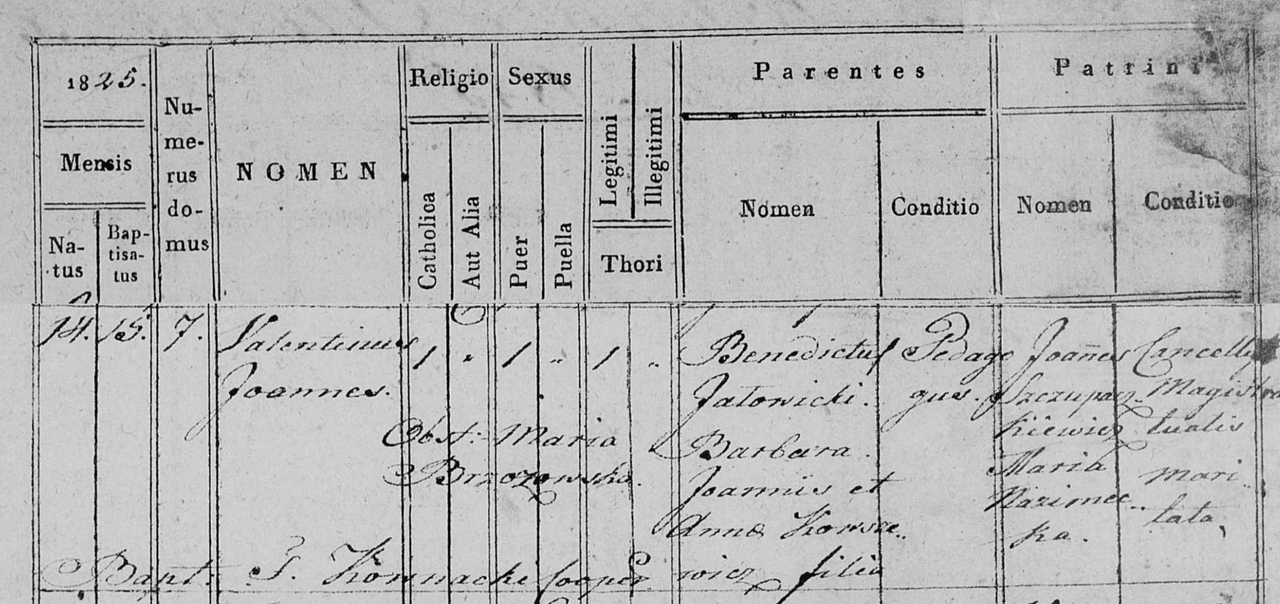 1825.
Mensis
Na-
tus
Bap-
tisa-
tus
Nu-
me-
rus
do-
mus
NOMEN
Religio
Catholica
Aut Alia
Sexus
Puer
Puella
Legitimi
Illegitimi
Thori
Parentes
Nomen
Conditio
Patrini
Nomen
Conditio
14. 15. 7.
Valentinus
Joannes.
1 " 1 " 1 "
Obst: Maria
Brzozowska.
Benedictus
Jatowicki.
Barbara
Joannis et
Annæ
wicz filia
Pedago
gus.
Joañes
Szczupacz
kiewicz
Maria
ka.
Magistra
tualis
Mari
tata
Bapt: Kownacki Cooper